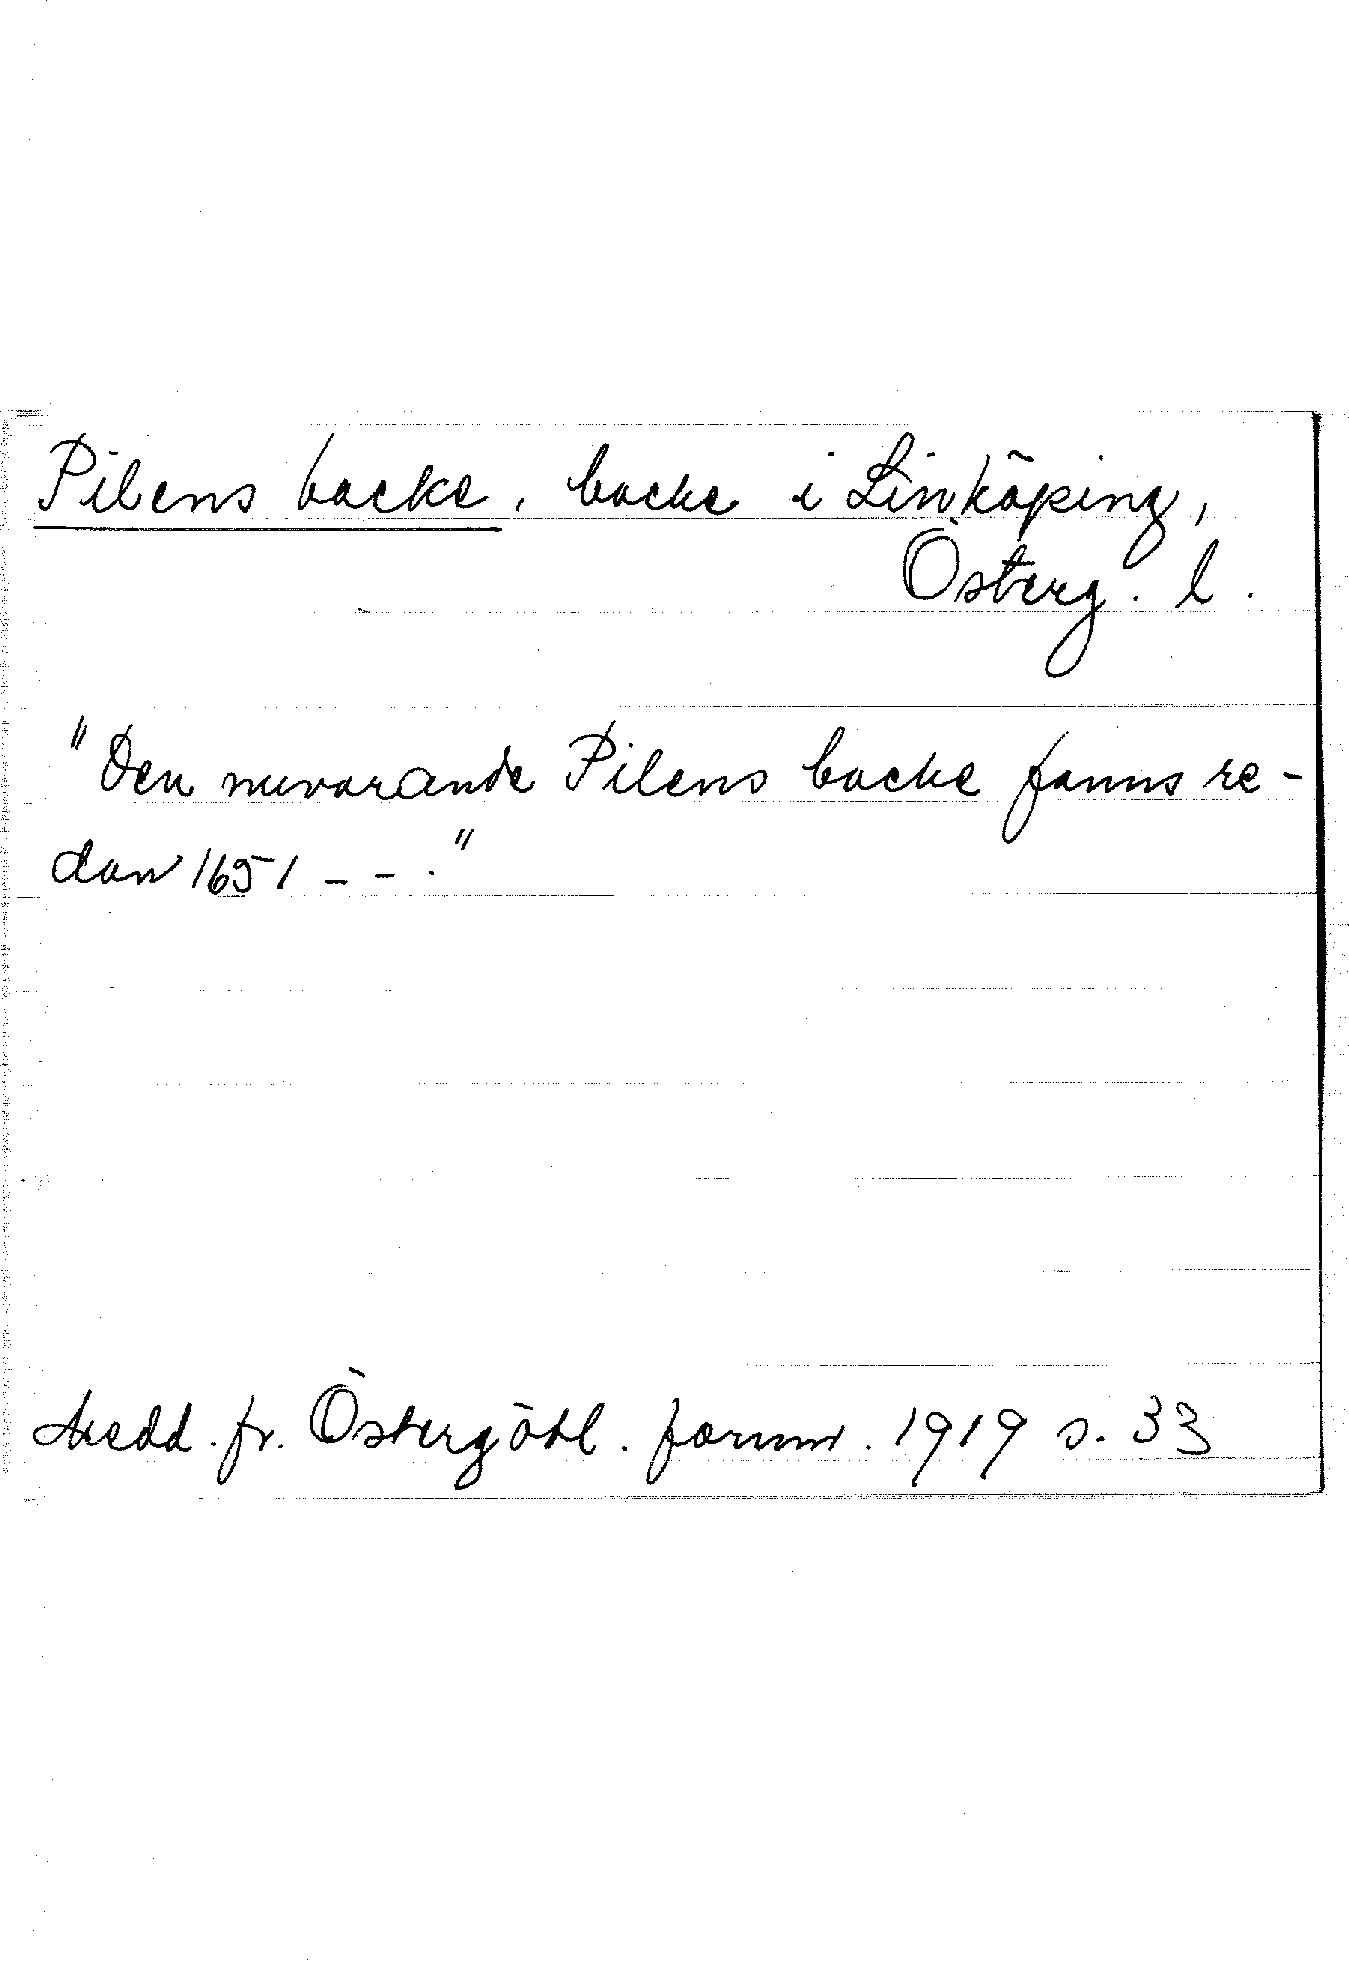 Pilens backe, backe i Linköping,
Österg. l.
"Den nuvarande Pilens backe fanns re-
dan 1651 - - ."
Medd. fr. Östergötl. fornm. 1919 s. 33